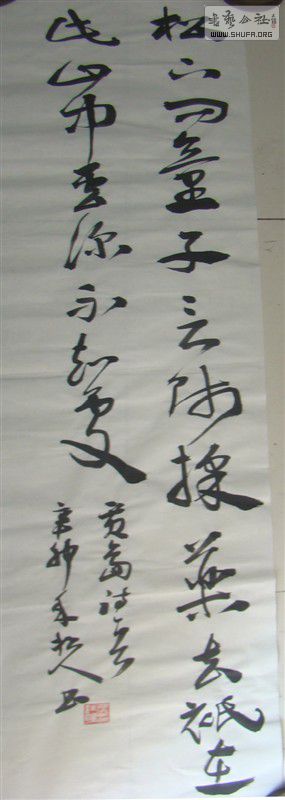 書藝公社
WWW.SHUFA.ORG
松下问童子言师採藥去祇在
此山中雲深不知處
賈島詩
辛卯 松人书